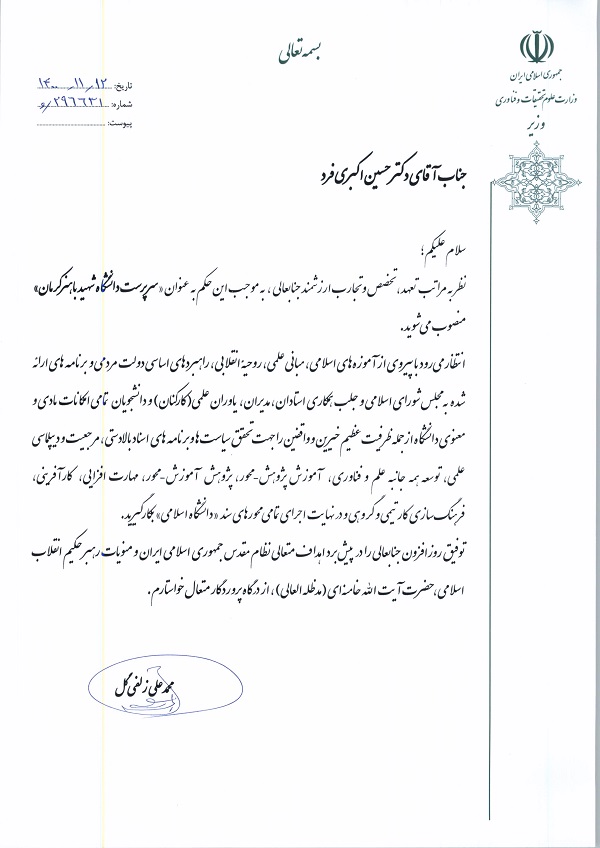 بسمه تعالی
جمهوری اسلامی ایران
وزارت علوم تحقیقات و فناوری
وزیر
تاریخ: ۱۴۰۰/۱۱/۱۲
شماره: ۲۹۶۶۳۱/و
پیوست:
جناب آقای دکتر حسین اکبری فرد
سلام علیکم؛
نظر به مراتب تعهد، تخصص و تجارب ارزشمند جنابعالی، به موجب این حکم به عنوان «سرپرست دانشگاه شهید باهنر کرمان»
منصوب می شوید.
انتظار می رود با پیروی از آموزه های اسلامی، مبانی علمی، روحیه انقلابی، راهبردهای اساسی دولت مردمی و برنامه های ارائه
شده به مجلس شورای اسلامی و جلب همکاری استادان، مدیران، یاوران علمی (کارکنان) و دانشجویان تمامی امکانات مادی و
معنوی دانشگاه از جمله ظرفیت عظیم خیرین و واقفین را جهت تحقق سیاست ها و برنامه های اسناد بالادستی، مرجعیت و دیپلماسی
علمی، توسعه همه جانبه علم و فناوری، آموزش پژوهش-محور، پژوهش آموزش-محور، مهارت افزایی، کارآفرینی،
فرهنگ سازی کار تیمی و گروهی و در نهایت اجرای تمامی محورهای سند «دانشگاه اسلامی» بکار گیرید.
توفیق روزافزون جنابعالی را در پیش برد اهداف متعالی نظام مقدس جمهوری اسلامی ایران و منویات رهبر حکیم انقلاب
اسلامی، حضرت آیت الله خامنه ای (مدظله العالی)، از درگاه پروردگار متعال خواستارم.
محمد علی زلفی گل